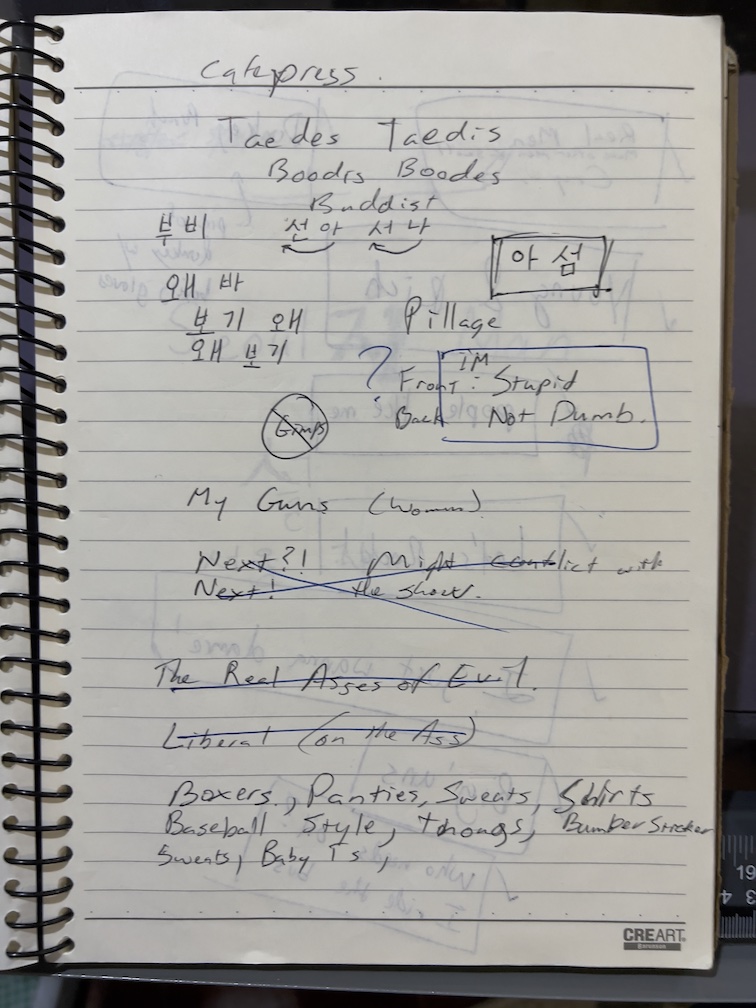 Cafepress.
Taedes Taedis
Boodis Boodes
Buddist
부비 선아 서나
아 섬
왜 바
보기 왜
왜 보기
Pillage
?
IM
Front: Stupid
Back Not Dumb.
Gimps
My Guns (Woman)
Next?! Might conflict with
Next! the show.
The Real Asses of Evil.
Liberal (on the Ass)
Boxers, Panties, Sweats, Shirts
Baseball Style, Thongs, BumberSticker
Sweats, Baby Ts,
CREART